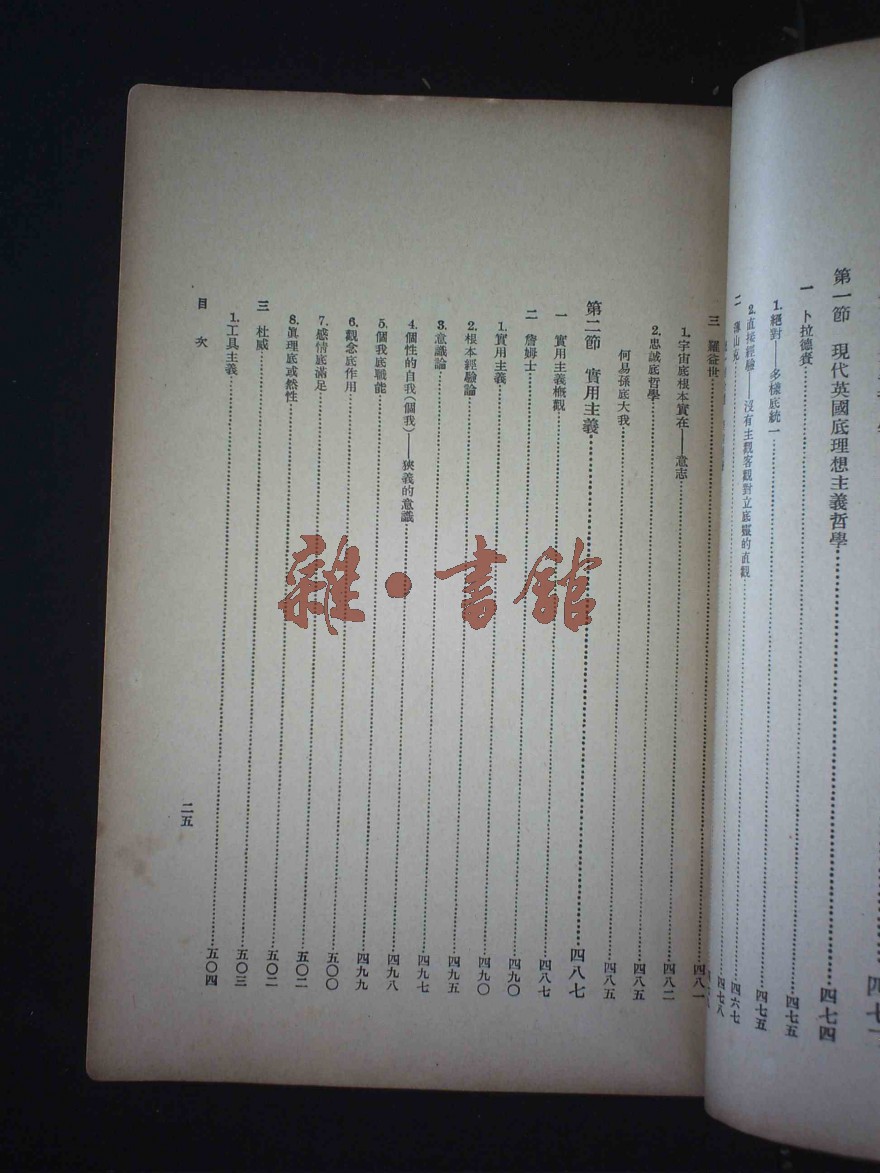 第一節　現代英國底理想主義哲學⋯⋯四七四
一　卜拉德賚⋯⋯四七五
1.絕對——多樣底統一⋯⋯四七五
2.直接經驗——沒有主觀客觀對立底靈的直觀
三　羅益世⋯⋯四八一
1.宇宙底根本實在——意志⋯⋯四八二
2.忠誠底哲學⋯⋯四八五
何易孫底大我⋯⋯四八五
第二節　實用主義⋯⋯四八七
一　實用主義槪觀⋯⋯四八七
二　詹姆士⋯⋯四九〇
1.實用主義⋯⋯四九〇
2.根本經驗論⋯⋯四九五
3.意識論⋯⋯四九七
4.個性的自我(個我)——狹義的意識⋯⋯四九八
5.個我底職能⋯⋯四九九
6.觀念底作用⋯⋯五〇〇
7.感情底滿足⋯⋯五〇二
8.眞理底或然性⋯⋯五〇二
三　杜威⋯⋯五〇三
1.工具主義⋯⋯五〇四
目次
二五
雜·書館